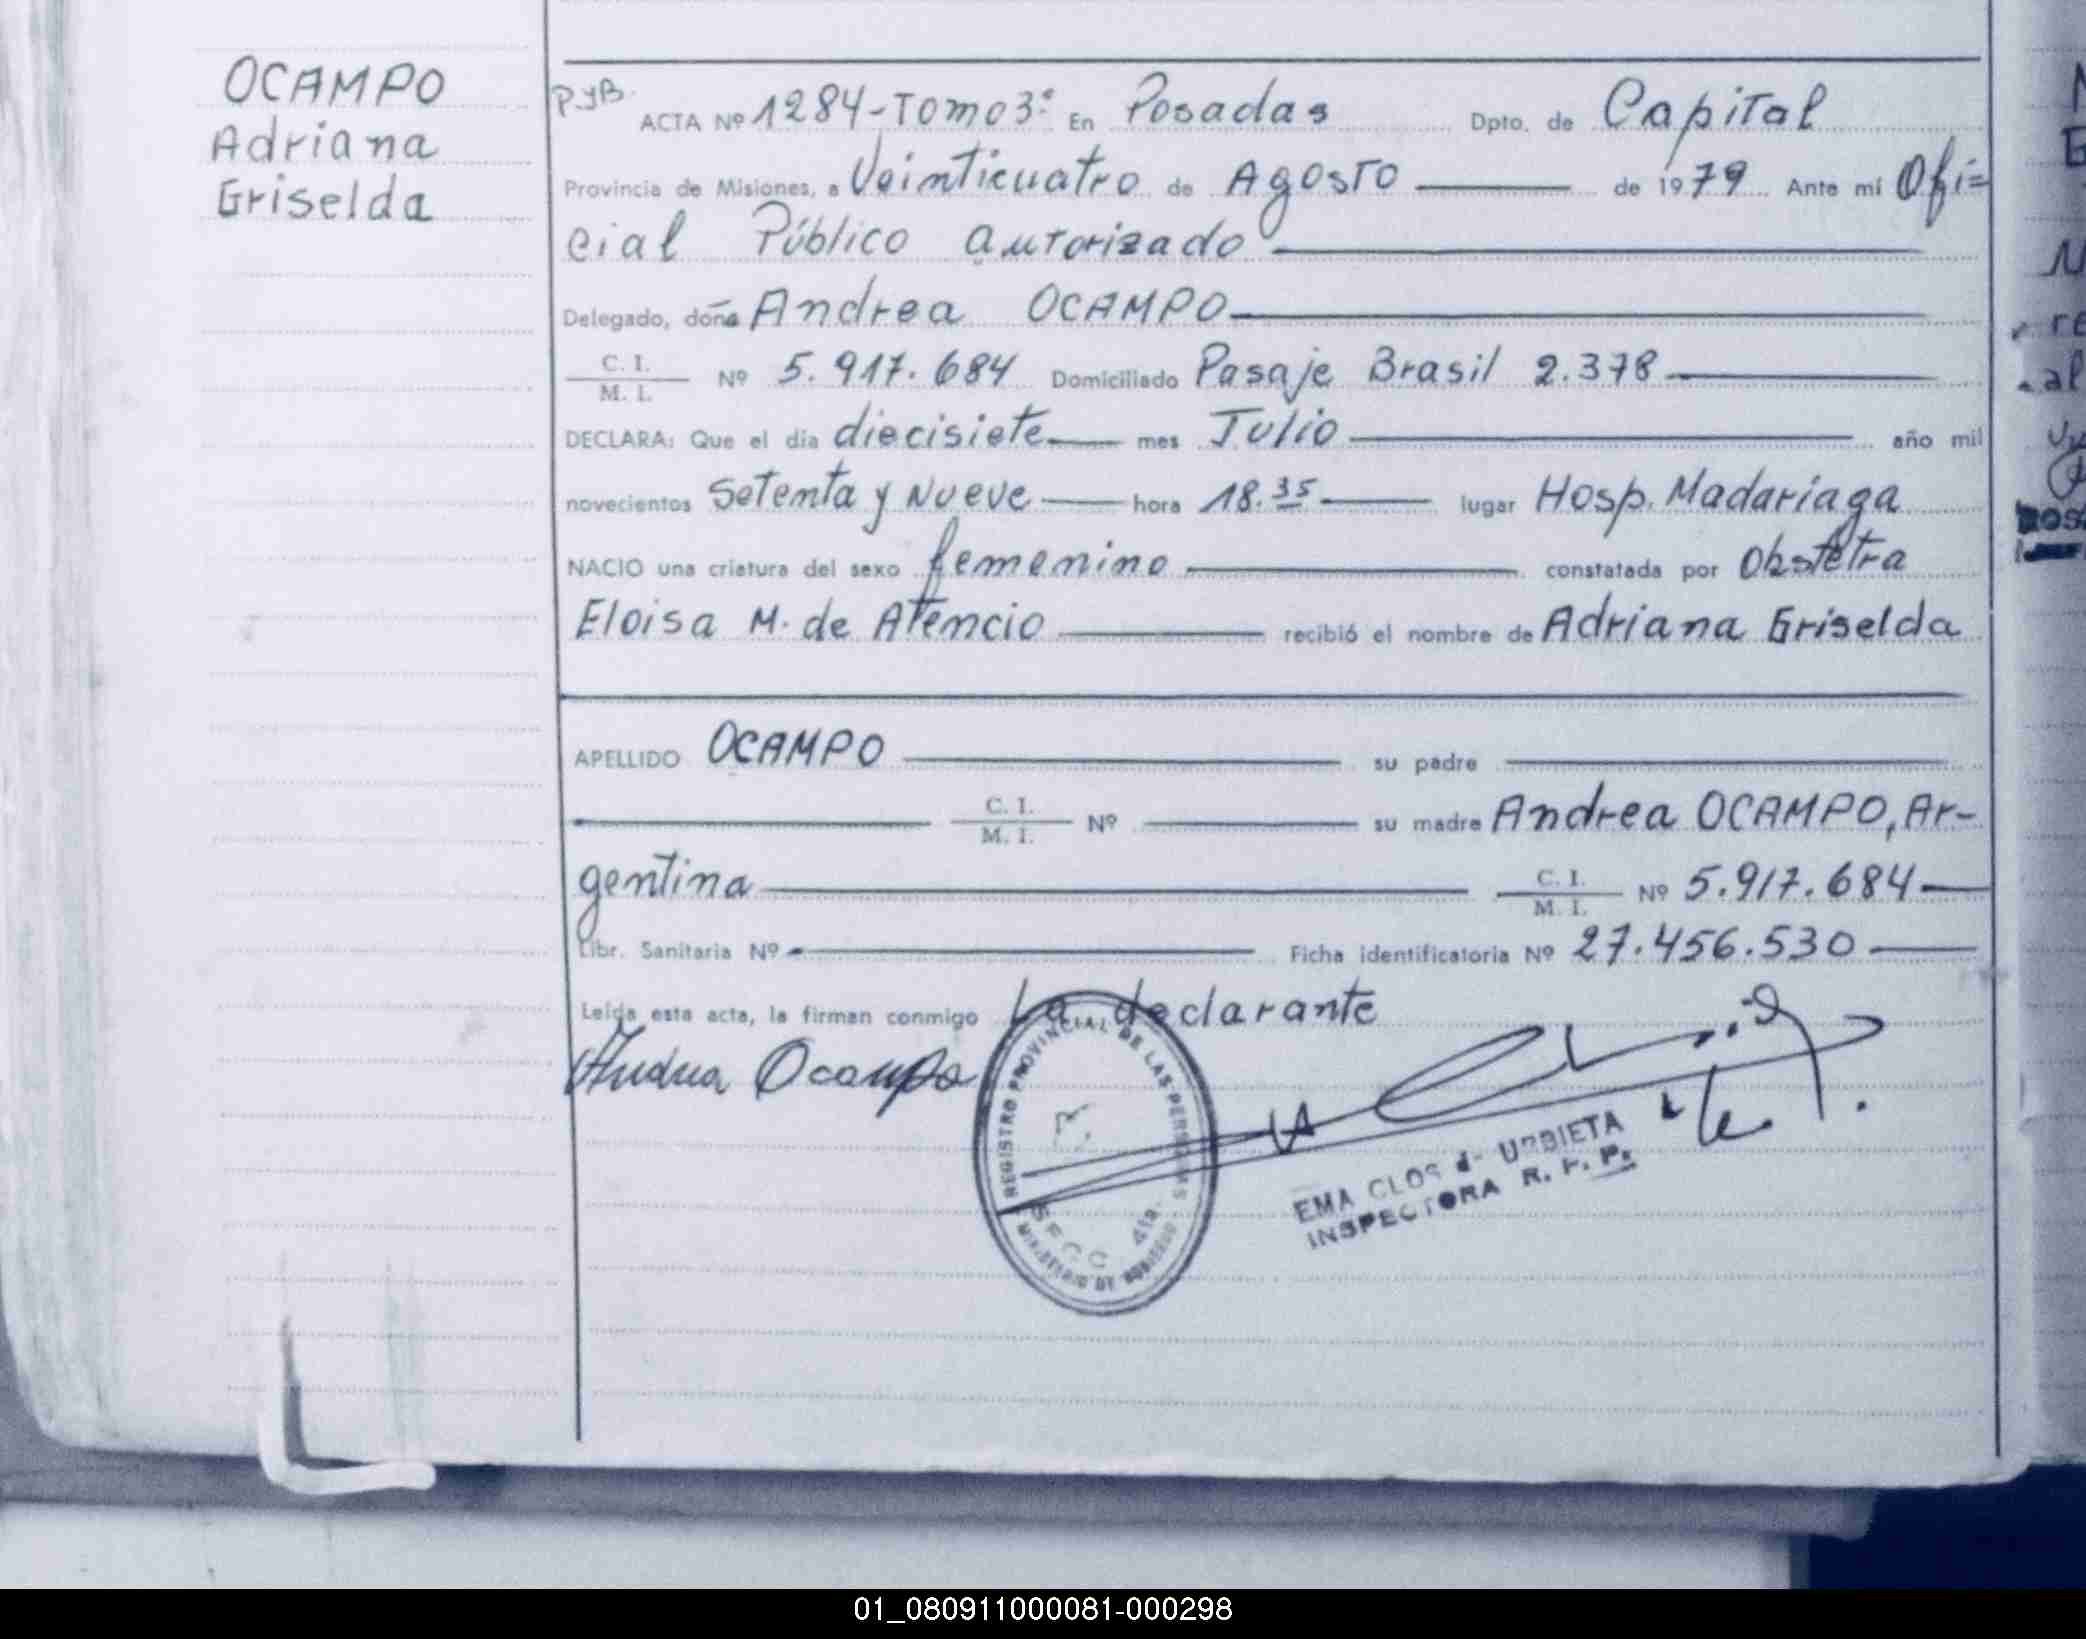 OCAMPO
Adriana
Griselda
PyB.
ACTA Nº 1284-Tomo 3º En Posadas Dpto. de Capital
Provincia de Misiones, a Veinticuatro de Agosto de 1979 Ante mí Ofi=
cial Público autorizado
Delegado, doña Andrea OCAMPO
C. I.
M. I. Nº 5.917.684 Domiciliado Pasaje Brasil 2.378
DECLARA: Que el día diecisiete mes Julio año mil
novecientos Setenta y Nueve hora 18.35 lugar Hosp. Madariaga
NACIO una criatura del sexo femenino constatada por Obstetra
Eloisa M. de Atencio recibió el nombre de Adriana Griselda
APELLIDO OCAMPO su padre
C. I.
M. I. Nº su madre Andrea OCAMPO, Ar-
gentina C. I.
M. I. Nº 5.917.684
Libr. Sanitaria Nº Ficha identificatoria Nº 27.456.530
Leída esta acta, la firman conmigo La declarante
Andrea Ocampo
REGISTRO PROVINCIAL DE LAS PERSONAS
SECC 4ta.
MINISTERIO DE GOBIERNO
EMA CLOS de URBIETA
INSPECTORA R. P. P.
01_080911000081-000298